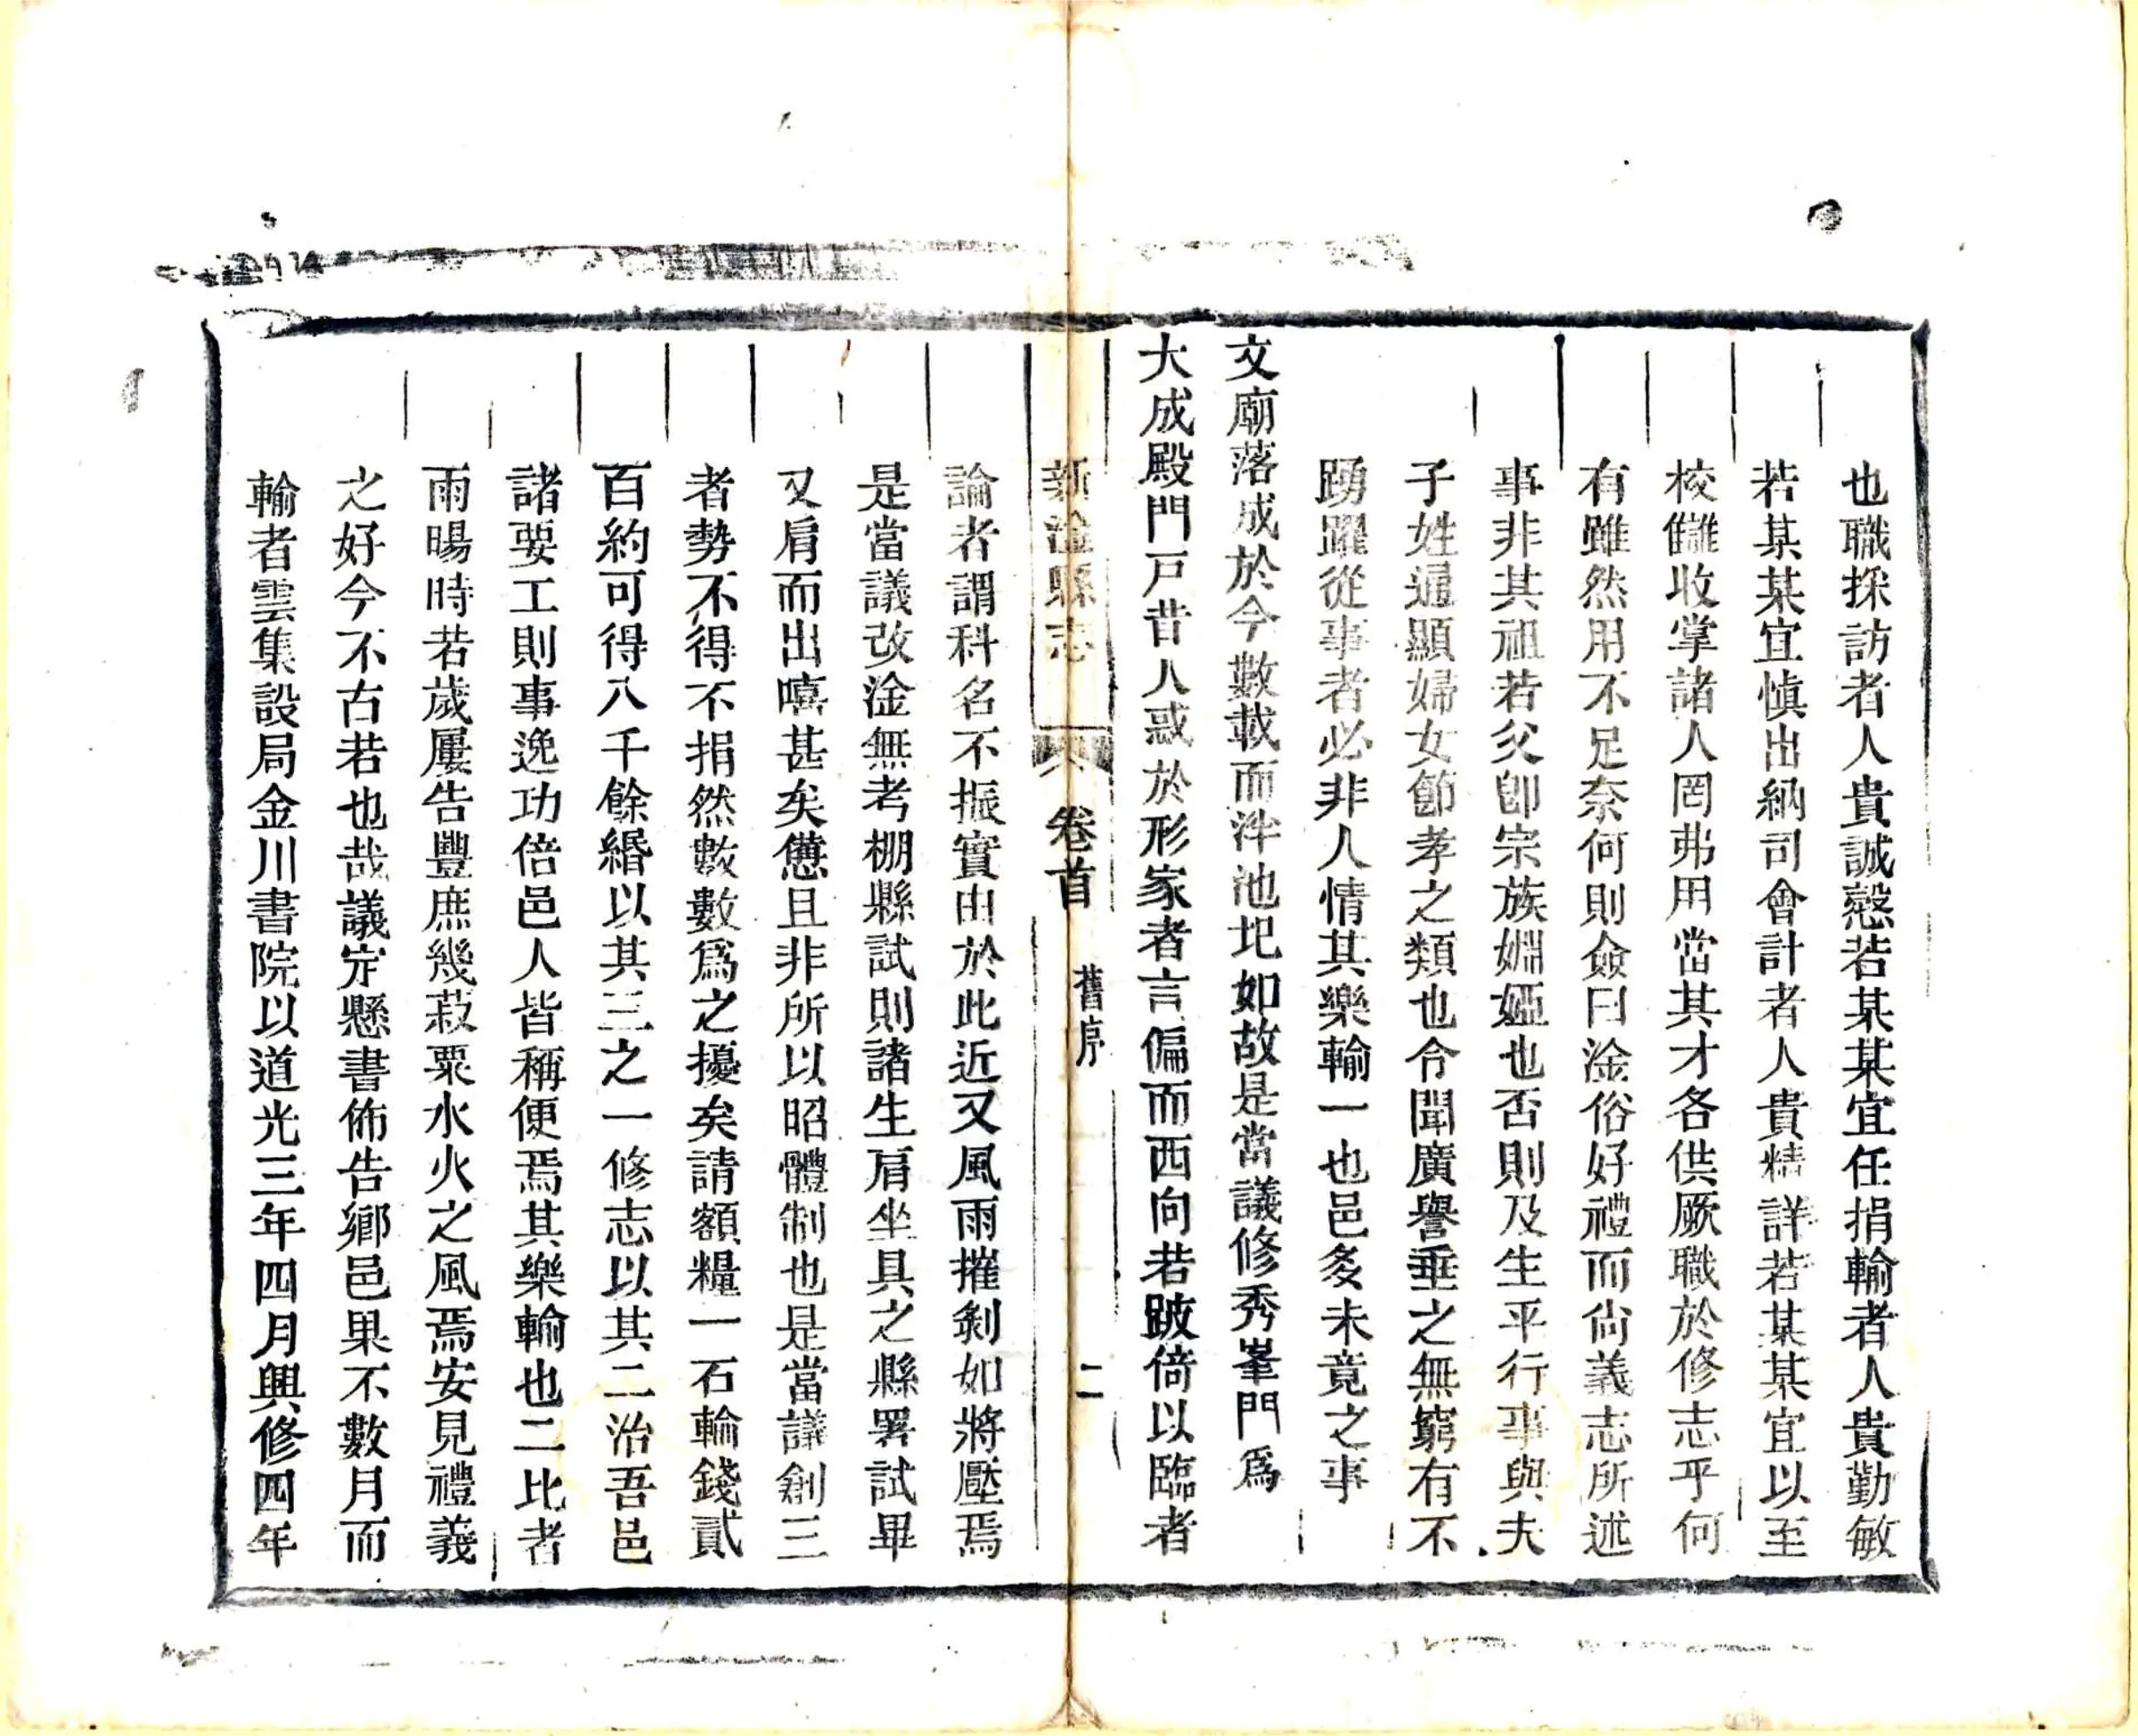 也職採訪者人貴誠慤若某某宜任捐輸者人貴勤敏
若某某宜慎出納司會計者人貴精詳若某某宜以至
校讎收掌諸人罔弗用當其才各供厥職於修志乎何
有雖然用不足奈何則僉曰淦俗好禮而尙義志所述
事非其祖若父卽宗族婣婭也否則及生平行事與夫
子姓通顯婦女節孝之類也令聞廣譽垂之無窮有不
踴躍從事者必非人情其樂輸一也邑多未竟之事
文廟落成於今數載而泮池圯如故是當議修秀峯門爲
大成殿門戸昔人惑於形家者言偏而西向若跛倚以臨者
新淦縣志 卷首 舊序 二
論者謂科名不振實由於此近又風雨摧剝如將壓焉
是當議改淦無考棚縣試則諸生肩坐具之縣署試畢
又肩而出嘻甚矣憊且非所以昭體制也是當議創三
者勢不得不捐然數數爲之擾矣請額糧一石輸錢貳
百約可得八千餘緡以其三之一修志以其二治吾邑
諸要工則事逸功倍邑人皆稱便焉其樂輸也二比者
雨暘時若歲屢告豐庶幾菽粟水火之風焉安見禮義
之好今不古若也哉議定懸書佈告鄉邑果不數月而
輸者雲集設局金川書院以道光三年四月興修四年